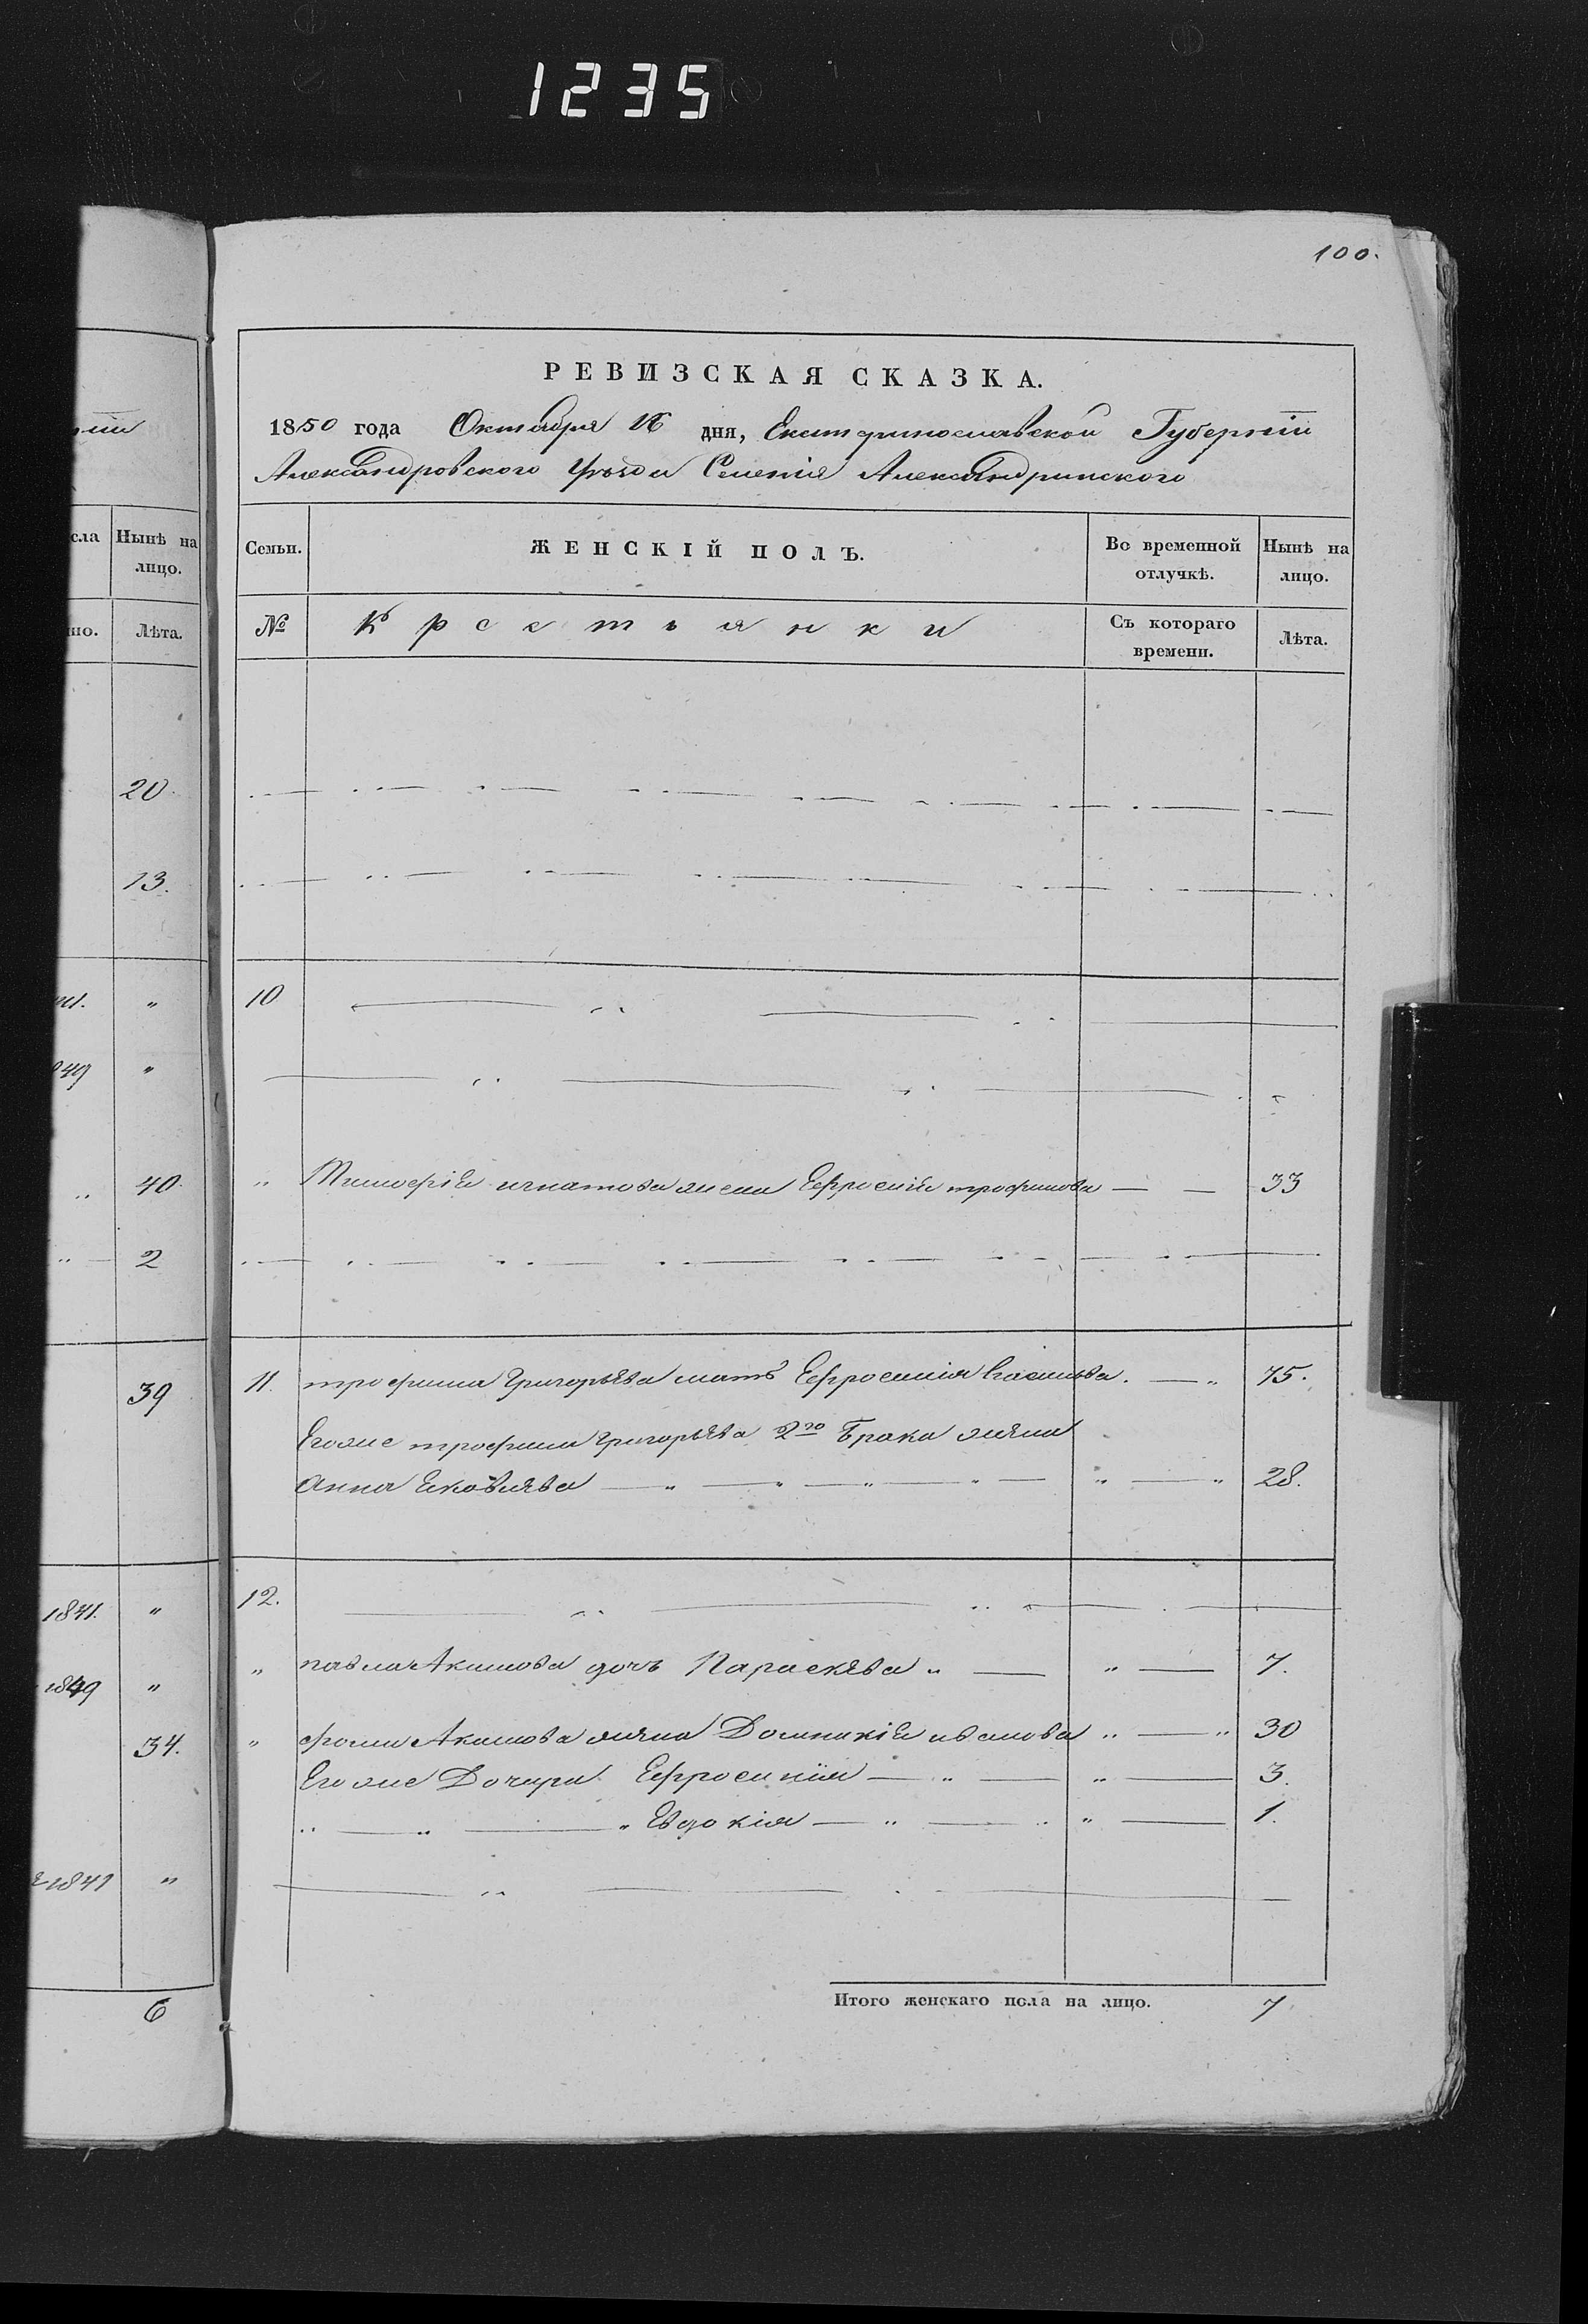 1235
100.
РЕВИЗСКАЯ СКАЗКА.
1850 года Октября 16 дня, Екатеринославской Губернiи
Александровского Уѣзда Селенiя Александринского
сла Нынѣ на лицо.
но. Лѣта.
Семьи. ЖЕНСКIЙ ПОЛЪ. Во временной отлучкѣ. Нынѣ на лицо.
№ Крестьянки Съ котораго времени. Лѣта.
20
13.
10
"
49 "
40 " Тимофѣя игнатова жена Ефросинiя трофимова — — 33
2
39 11. трофима григорьева мать Ефросинiя Васильева. — " 75.
Егоже трофима григорьева 2го Брака жена
Анна Яковлева — " — " — " — " — " — " 28.
1841. " 12.
1849 " " павла Акимова дочь Параскева " — " — 7.
34. " фомы Акимова жена Домникiя иванова " — " 30
Егоже Дочери Ефросинiя — " — " — 3.
" — " — " Евдокiя — " — " " — 1.
1841 "
6
Итого женскаго пола на лицо. 7